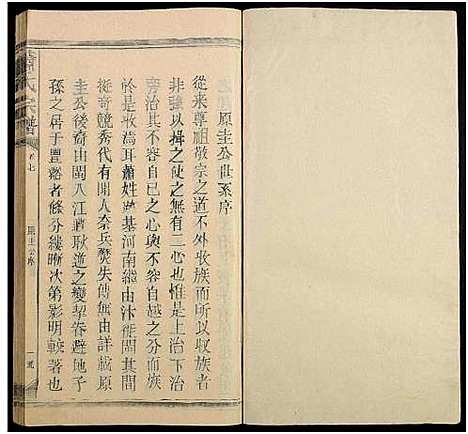 原圭公世系序
從来尊祖敬宗之道不外收族而所以收族者
非強以揖之使之無有二心也惟是上治下治
旁治其不容自已之心與不容自已之分而族
於是收焉耳蕭姓跡基河南繼由汴徙閩其間
挺奇競秀代有聞人奈兵燹失傳無由詳載原
圭公後裔由閩入江避耿道之變挈眷避地子
孫之居于豐谿者條分縷晰次第影明較著也
氏宗譜
卷七
原圭公序
一